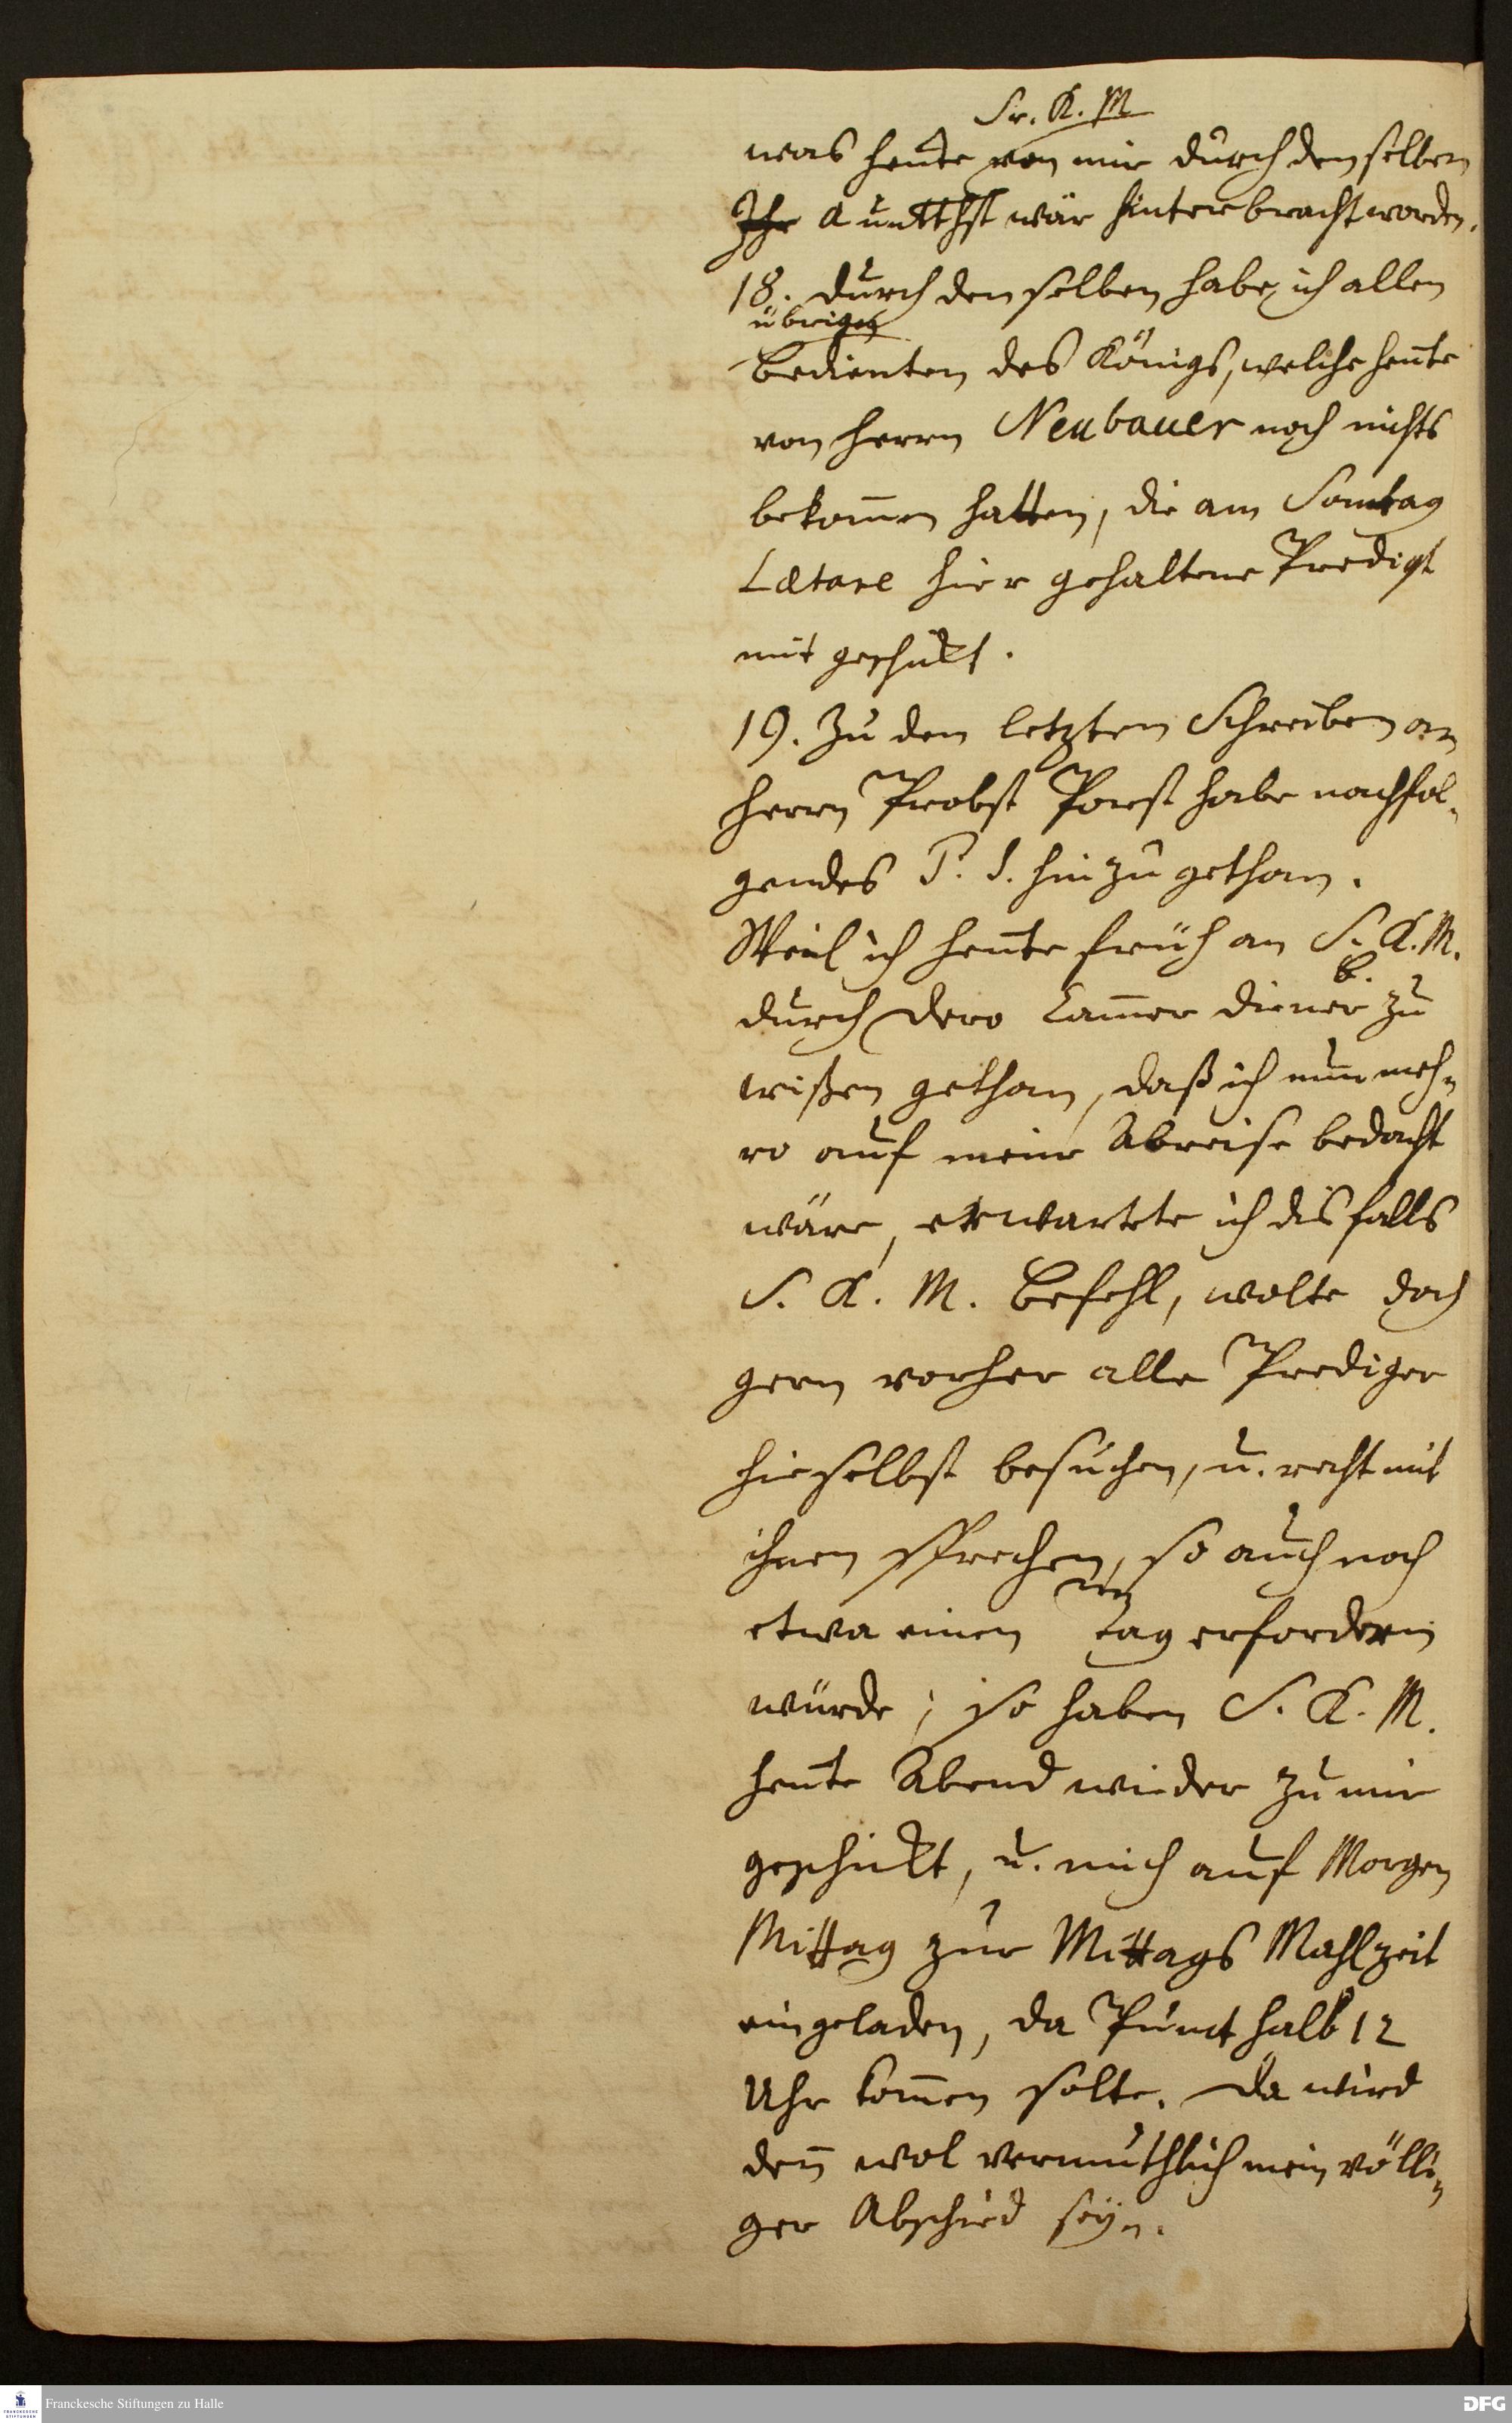 Sr. K. M
was heute von mir durch denselben
Ihr a untthst wär hinterbracht worden.
18. Durch denselben habe ich allen
übrigen
Bedienten des Königs, welche heute
von Herrn Neubauer noch nichts
bekom̄en hatten, die am Sontag
Lætare hier gehaltene Predigt
mit geschikt.
19. Zu dem letzten Schreiben an
Herrn Probst Porst habe nachfol-
gendes P. S. hinzu gethan.
Weil ich heute früh an S. K. M.
durch Dero Cam̄er diener
B.
zu
wißen gethan, daß ich nunmeh-
ro auf meine Abreise bedacht
wäre, erwartete ich disfalls
S. K. M. Befehl, wolte doch
gern vorher alle Prediger
hieselbst besuchen, u. recht mit
ihnen sprechen, so auch noch
etwa einen Tag erfordern
würde; so haben S. K. M.
heute Abend wieder zu mir
geschikt, u. mich auf Morgen
Mittag zur Mittags Mahlzeit
eingeladen, da Punct halb 12
Uhr kom̄en solte. Da wird
den̄ wol vermuthlich mein völli-
ger Abschied seÿn.
Franckesche Stiftungen zu Halle
DFG